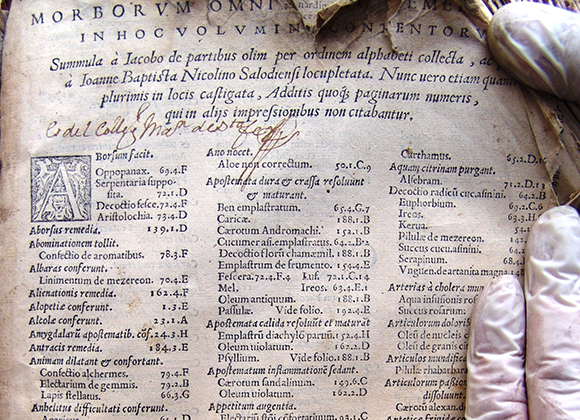 MORBORVM OMNI
IN HOC VOLVMIN CONTENTORV
Summula à Iacobo de partibus olim per ordinem alphabeti collecta, ac
à Ioanne Baptista Nicolino Salodiensi locupletata. Nunc uero etiam quam
plurimis in locis castigata, Additis quoq; paginarum numeris,
qui in alijs impressionibus non citabantur.
ABorsum facit.
Oppopanax. 69.4.F
Serpentaria suppo-
sita. 72.1.D
Decoctio fesce. 72.4.F
Aristolochia. 73.4.D
Aborsus remedia. 139.1.D
Abominationem tollit.
Confectio de aromatibus. 78.3.F
Albaras conferunt.
Linimentum de mezereon. 70.4.E
Alienationis remedia. 162.4.F
Alopetiæ conferunt. 1.3.E
Alcolæ conferunt. 23.1.A
Amygdalarũ apostematib. cõf. 24.3.H
Antracis remedia. 184.3.E
Animam dilatant & confortant.
Confectio alchermes. 79.4.F
Electarium de gemmis. 79.2.B
Lapis stellatus. 66.3.G
Anhelitus difficultati conferunt.
Ano nocet.
Aloe non correctum. 50.1.C.9
Apostemata dura & crassa resoluunt
& maturant.
Ben emplastratum. 65.4.G.7
Caricæ. 188.1.B
Cærotum Andromachi. 152.1.B
Cucumer asi. emplastratus. 64.2.B.2
Decoctio florũ chamæmil. 188.1.B
Emplastrum de frumento. 154.4.E
Fescera. 72.4.F.4 Euf. 72.1.C.14
Mel. Ireos. 63.4.E.1
Oleum antiquum. 188.1.B
Passulæ. Vide folio. 192.4.E
Apostemata calida resoluũt et maturãt
Emplastrũ diachylõ paruũ. 152.4.H
Oleum uiolatum. 162.2.D
Psyllium. Vide folio. 188.1.B
Apostematum inflammationẽ sedant.
Cærotum sandalinum. 149.6.C
Oleum uiolatum. 162.2.D
Appetitum augentia.
Carthamus. 65.2.D.16
Aquam citrinam purgant.
Alsebram. 71.2.D.13
Decoctio radicũ cuc. asinini. 64.2.B
Euphorbium. 69.2.C.6
Ireos. 63.3.H
Kerua. 54.1
Pilulæ de mezereon. 142.
Succus cuc. asinini. 64.2
Serapinum. 68.4
Vnguen. de artanita magna.
Arterias à cholera mun
Aqua infusionis ros
Succus rosarum.
Articulorum dolorib
Oleũ de nucleis c
Olei de granis cit
Articulos mundific